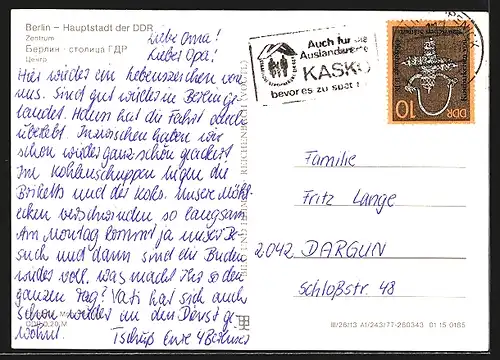 Berlin – Hauptstadt der DDR
Zentrum
Берлин · столица ГДР
Центр
Liebe Oma!
Lieber Opa!
Hier wieder ein Lebenszeichen von
uns. Sind gut wieder in Berlin ge-
landet. Hans hat die Fahrt auch
überlebt. Inzwischen haben wir
schon wieder ganz schön geackert
Im Kohlenschuppen liegen die
Briketts und der Koks. Unsere Möhl-
ecken verschwinden so langsam.
Am Montag kommt ja unser Be-
such und dann sind die Buden
wieder voll. Was macht Ihr so den
ganzen Tag? Vati hat sich auch
schon wieder an den Dienst ge-
wöhnt. Tschüß Eure 4 Berliner
BILD UND HEIMAT REICHENBACH
Auch für die
Auslandsreise
KASKO
bevor es zu spät
DDR
10
Familie
Fritz Lange
2042 DARGUN
Schloßstr. 48
III/26/13 A1/243/77-280343 01 15 0165